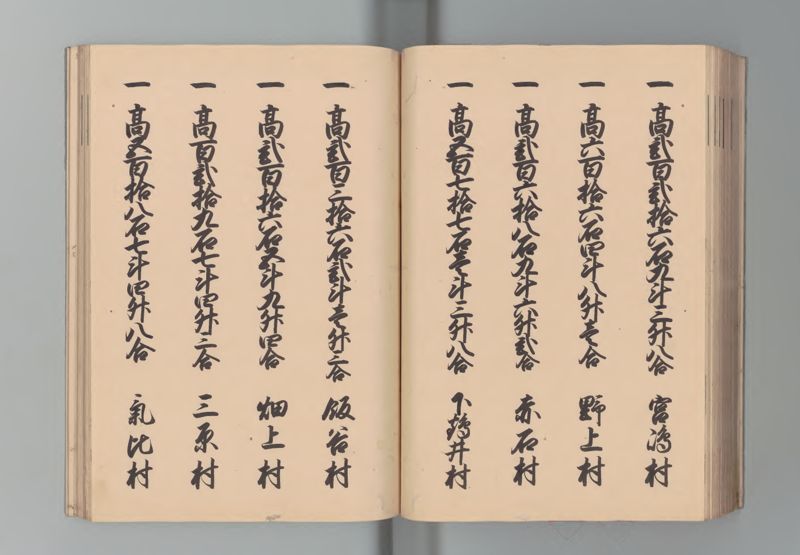 一 高弐百弐拾六石九斗三升八合 宮嶋村
一 高六百拾六石四斗八升壱合 野上村
一 高弐百六拾八石九斗六升弐合 赤石村
一 高五百七拾七石壱斗三升八合 下鶴井村
一 高弐百三拾六石弐斗壱升三合 飯谷村
一 高弐百拾六石五斗九升四合 畑上村
一 高百弐拾九石七斗四升三合 三原村
一 高五百拾八石七斗四升八合 氣比村